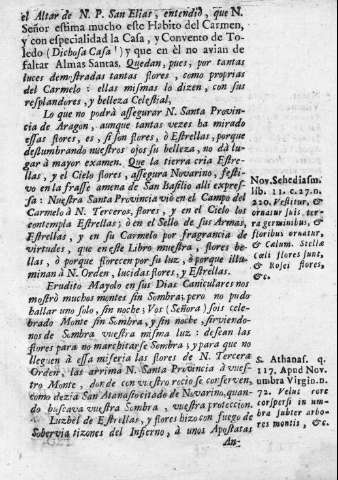 el Altar de N. P. San Elias, entendiò, que N.
Señor estima mucho este Habito del Carmen,
y con especialidad la Casa, y Convento de To-
ledo (Dichosa Casa!) y que en èl no avian de
faltar Almas Santas. Quedan, pues, por tantas
luces demostradas tantas flores, como proprias
del Carmelo: ellas mismas lo dizen, con sus
resplandores, y belleza Celestial,
Lo que no podrà assegurar N. Santa Provin-
cia de Aragon, aunque tantas vezes ha mirado
essas flores, es, si son flores, ò Estrellas, porque
deslumbrando nuestros ojos su belleza, no dà lu-
gar à mayor examen. Que la tierra cria Estre-
llas, y el Cielo flores, assegura Novarino, festi-
vo en la frasse amena de San Basilio alli expres-
sa: Nuestra Santa Provincia viò en el Campo del
Carmelo à N. Terceros, flores, y en el Cielo los
contempla Estrellas; ò en el Sello de sus Armas,
Estrellas, y en su Carmelo por fragrancia de
virtudes, que en este Libro muestra, flores be-
llas, ò porque florecen por su luz, ò porque illu-
minan à N. Orden, lucidas flores, y Estrellas.
Erudito Mayolo en sus Dias Caniculares nos
mostrò muchos montes sin Sombra; pero no pudo
hallar uno solo, sin noche; Vos (Señora) sois cele-
brado Monte sin Sombra, y sin noche, sirviendo-
nos de Sombra vuestra misma luz: desean las
flores para no marchitarse Sombra, y para que no
lleguen à essa miseria las flores de N. Tercera
Orden, las arrima N. Santa Provincia à vues-
tro Monte, donde con vuestro rocio se conserven,
como dezia San Atanasio citado de Novarino, quan-
do buscava vuestra Sombra, y vuestra proteccion.
Luzbel de Estrellas, y flores hizo con fuego de
Sobervia tizones del Infierno, à unos Apostatas
An-
Nov. Schediasm.
lib. 11. c. 27. n.
220. Vestitur, &
ornatur suis ter-
ra germinibus, &
floribus ornatur,
& Cælum. Stellæ
cæli flores sunt,
& Rosei flores,
&c.
S. Athanas. q.
117. Apud Nov.
umbra Virgin. n.
72. Velut rore
corspersi in um-
bra subter arbo-
res montis, &c.